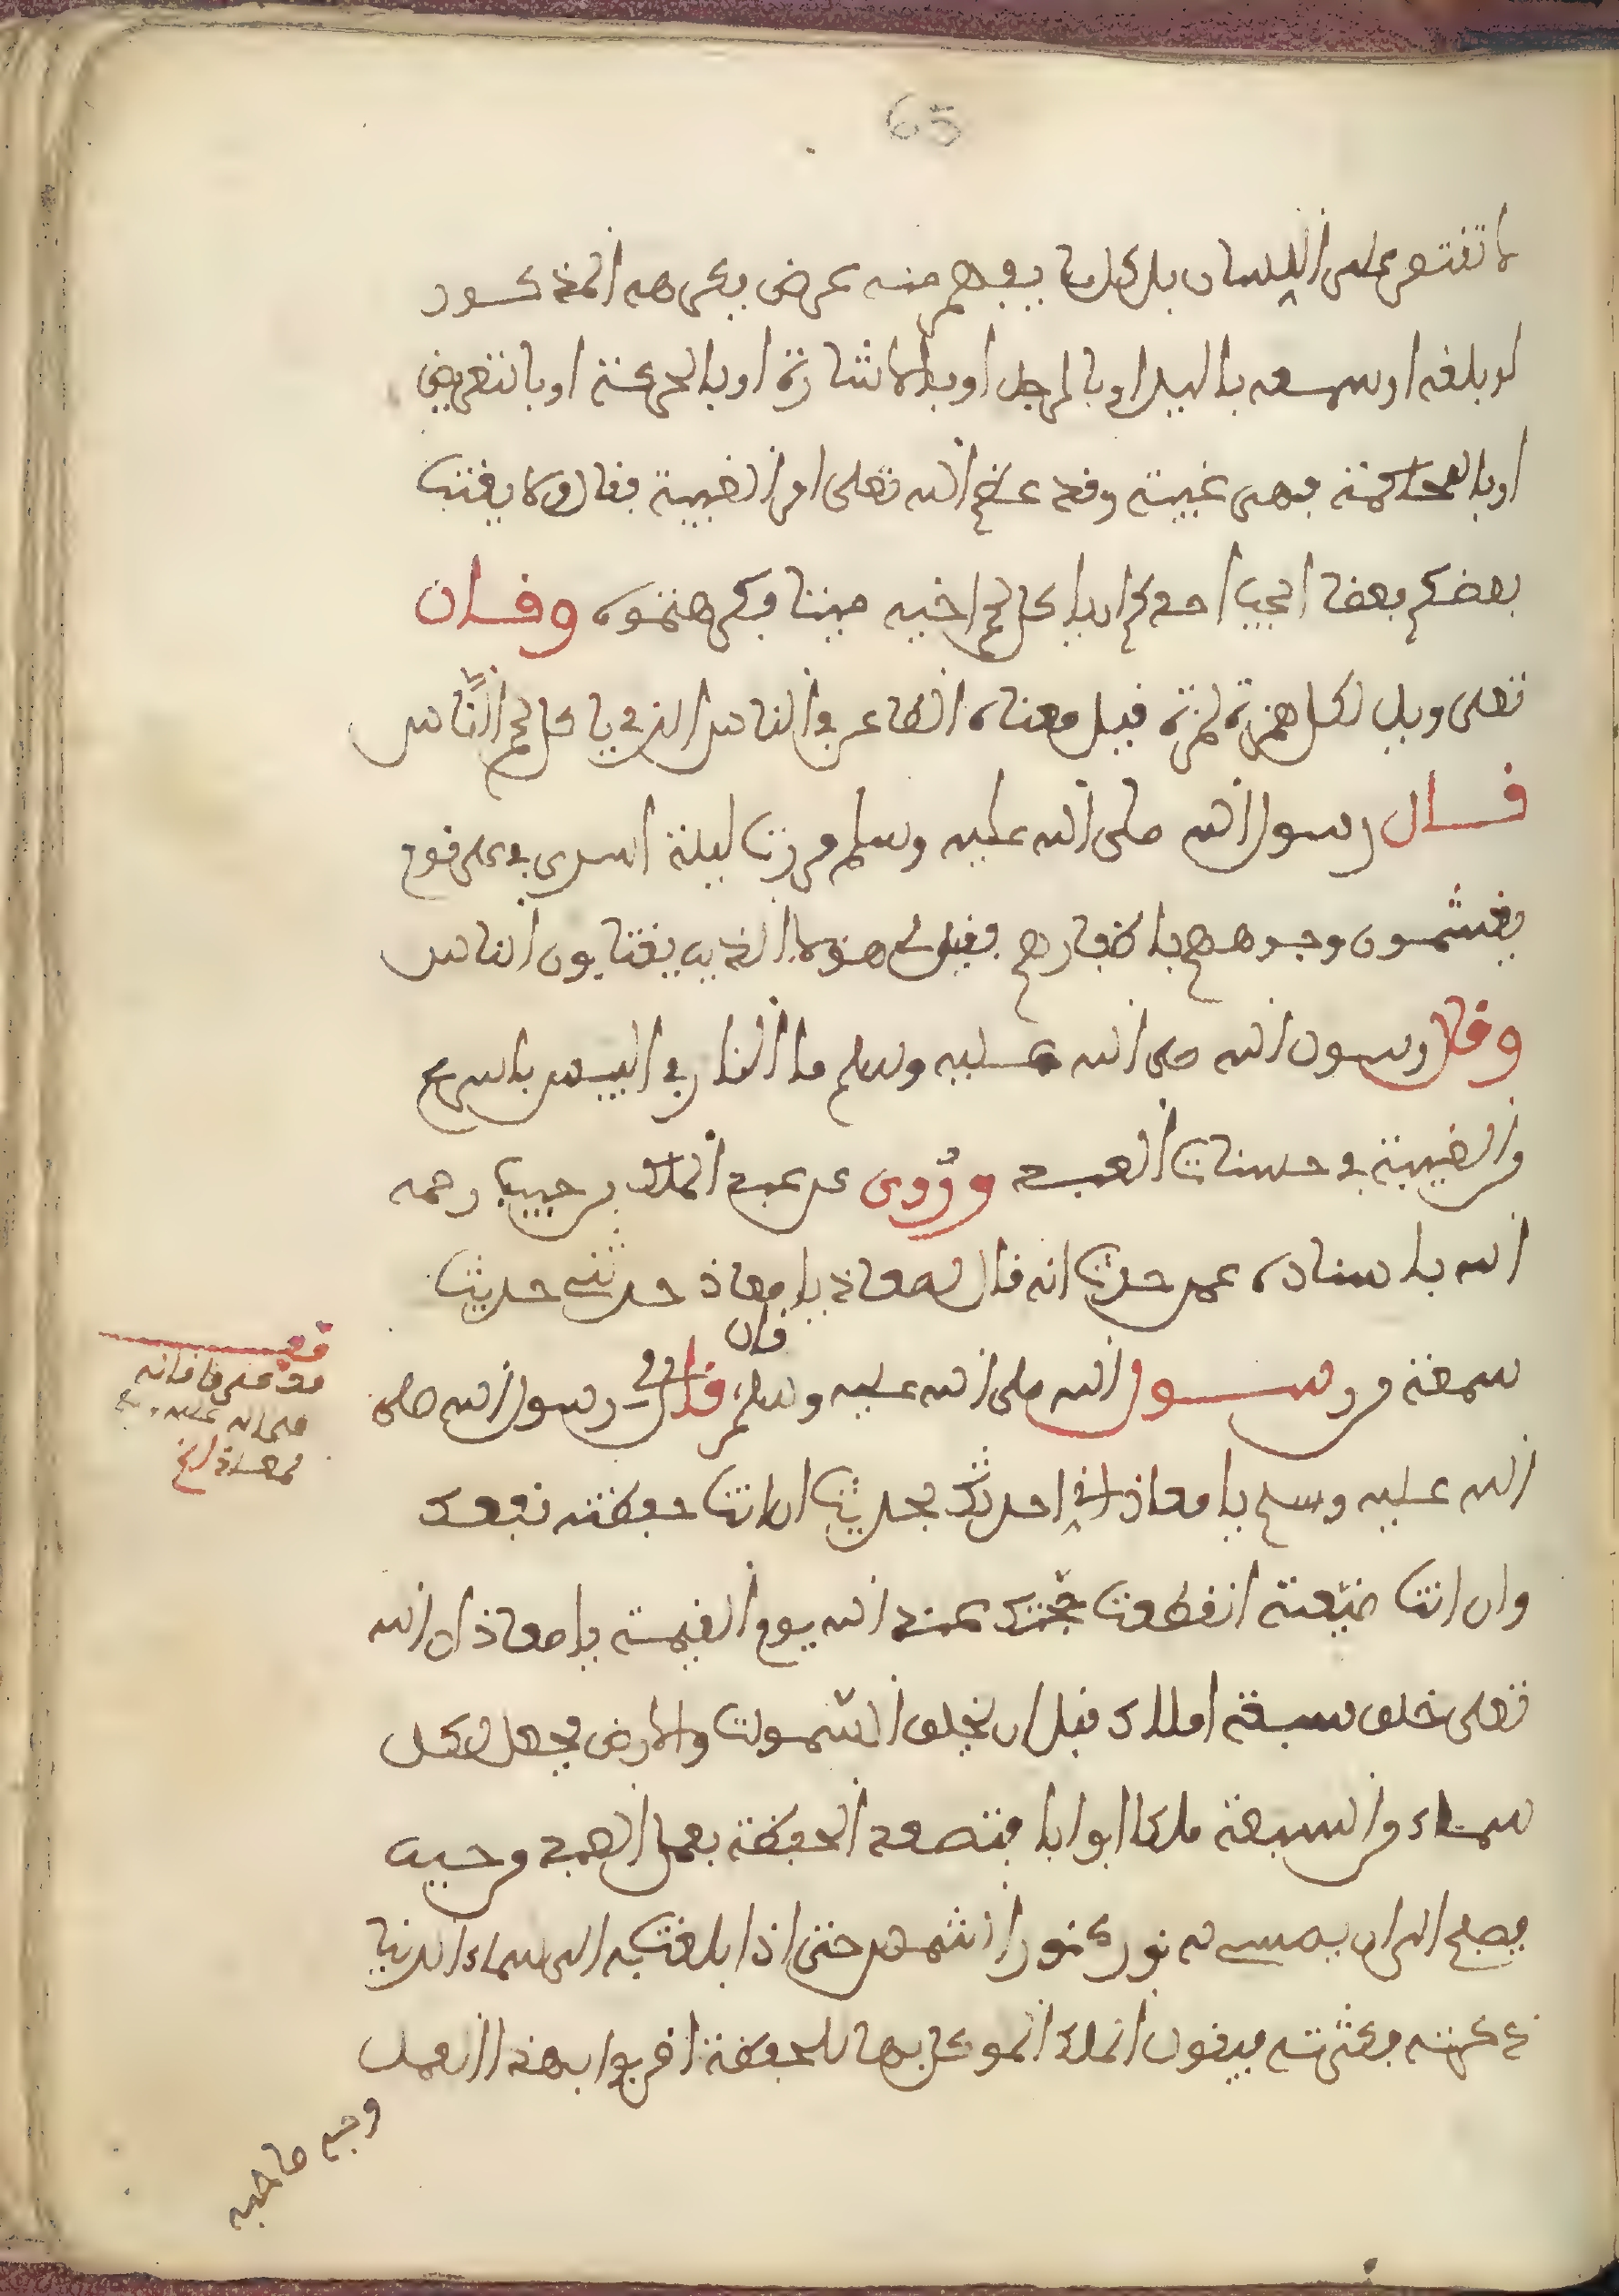 65
لا تقتصر على اللسان بل كل ما يفهم منه عرض يكرهه المذكور
لو بلغه او سمعه باليد او بالرجل او بالاشارة او بالحركة او بالتعريض
او بالمحاكمة فهي غيبة وقد عظم الله تعلى امر الغيبة فقال ولا يغتب
بعضكم بعضا ايحب احدكم ان ياكل لحم اخيه ميتا فكرهتموه وقال
تعلى ويل لكل همزة لمزة قيل معناه الطاعن في الناس الذي ياكل لحم الناس
قال رسول الله صلى الله عليه وسلم مررت ليلة اسري بي على قوم
يغشمون وجوههم باظفارهم فقيل لي هؤلاء الذين يغتابون الناس
وقال رسول الله صلى الله عليه وسلم ما النار في اليبس باسرع
من الغيبة في حسنات العبد وروى عن عبد الملك بن حبيب رحمه
الله باسناده عمن حدث انه قال لمعاذ يا معاذ حدثني حديث
سمعته من رسول الله صلى الله عليه وسلم قال قال لي رسول الله صلى
قال
الله عليه وسلم يا معاذ اني احدثك بحديث ان انت حفظته نفعك
وان انت ضيعته انقطعت حجتك عند الله يوم القيمة يا معاذ ان الله
تعلى خلق سبعة املاك قبل ان يخلق السموت والارض فجعل لكل
سماء من السبعة ملكا ابوابا فتصعد الحفظة بعمل العبد من حين
يصبح الى ان يمسي له نور كنور الشمس حتى اذا بلغت به الى سماء الدنيا
زكته فكثرته فيقول الملك الموكل بها للحفظة اضربوا بهذا العمل
وجه صاحبه
قف
قف على ما قاله
صلى الله عليه وسلم
لمعاذ الخ